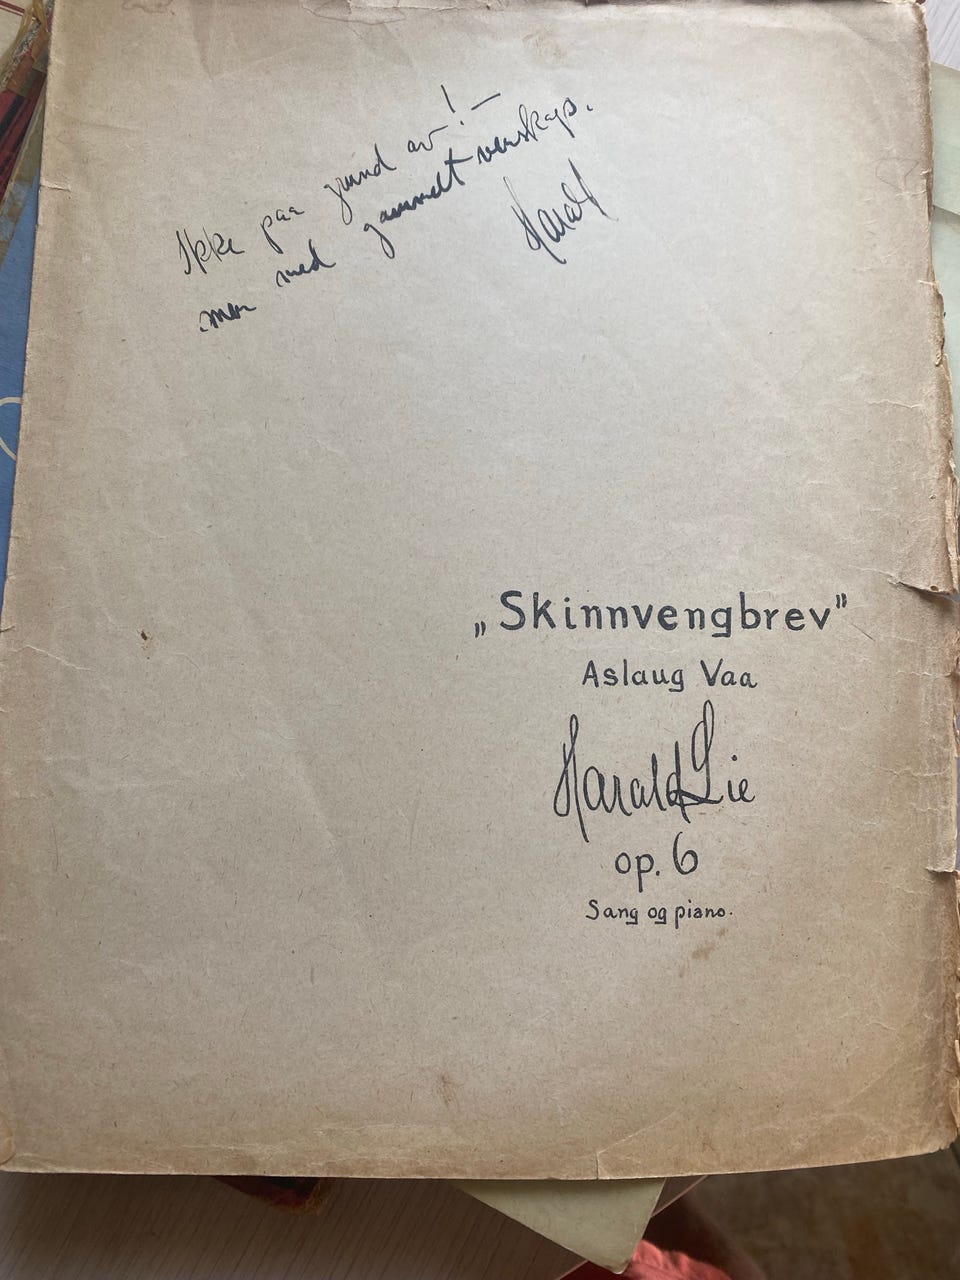 Ikke paa grund av! –
men med gammelt venskap.
Harald
„Skinnvengbrev"
Aslaug Vaa
Harald Lie
op. 6
Sang og piano.